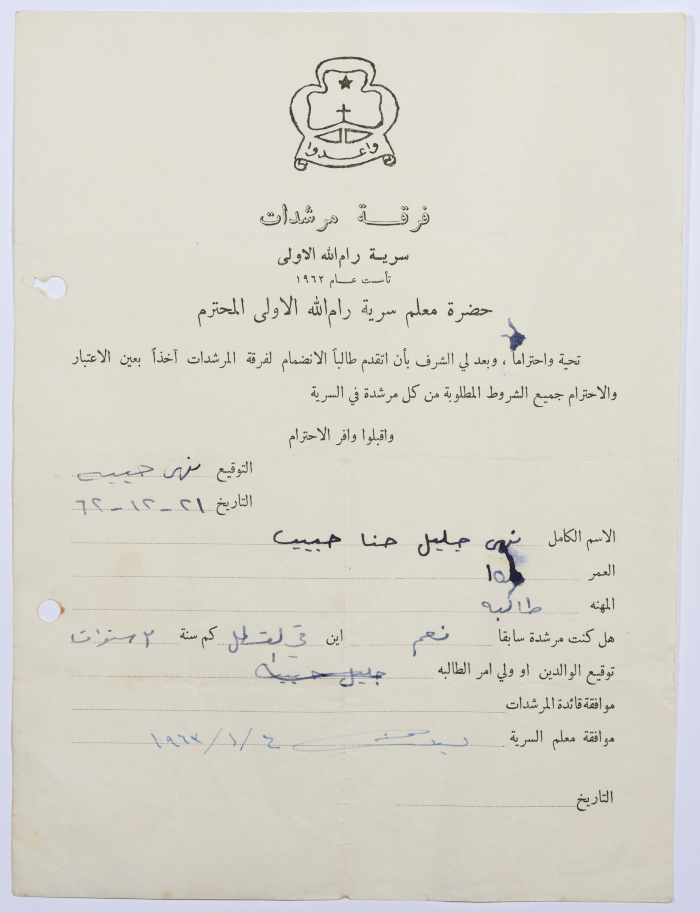 واعدوا
فرقة مرشدات
سرية رام الله الاولى
تأسست عام ١٩٦٢
حضرة معلم سرية رام الله الاولى المحترم
تحية واحتراماً ، وبعد لي الشرف بأن اتقدم طالباً الانضمام لفرقة المرشدات آخذاً بعين الاعتبار
والاحترام جميع الشروط المطلوبة من كل مرشدة في السرية
واقبلوا وافر الاحترام
التوقيع نهى حبيب
التاريخ ٢١-١٢-٦٢
الاسم الكامل نهى جليل حنا حبيب
العمر
المهنه طالبه
هل كنت مرشدة سابقا نعم اين في كم سنة ٢ سنوات
توقيع الوالدين او ولي امر الطالبه جليل حبيب
موافقة قائدة المرشدات
موافقة معلم السرية ٤/١/١٩٦٣
التاريخ